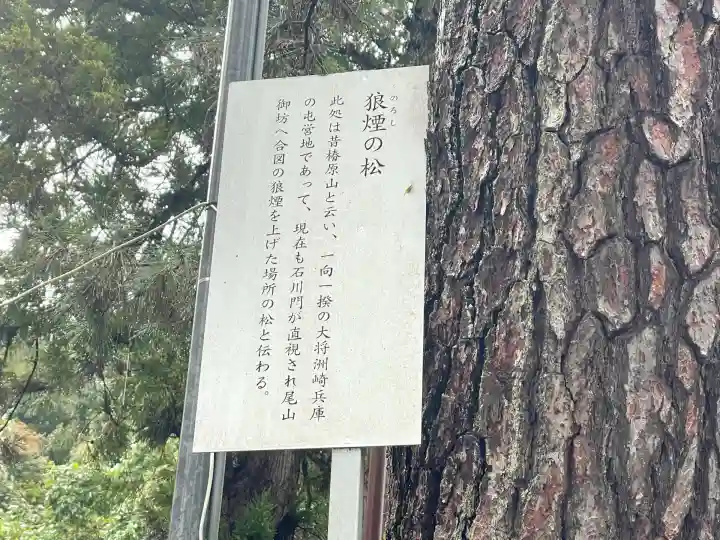 のろし
狼煙の松
此処は昔椿原山と云い、一向一揆の大将洲崎兵庫
の屯営地であって、現在も石川門が直視され尾山
御坊へ合図の狼煙を上げた場所の松と伝わる。